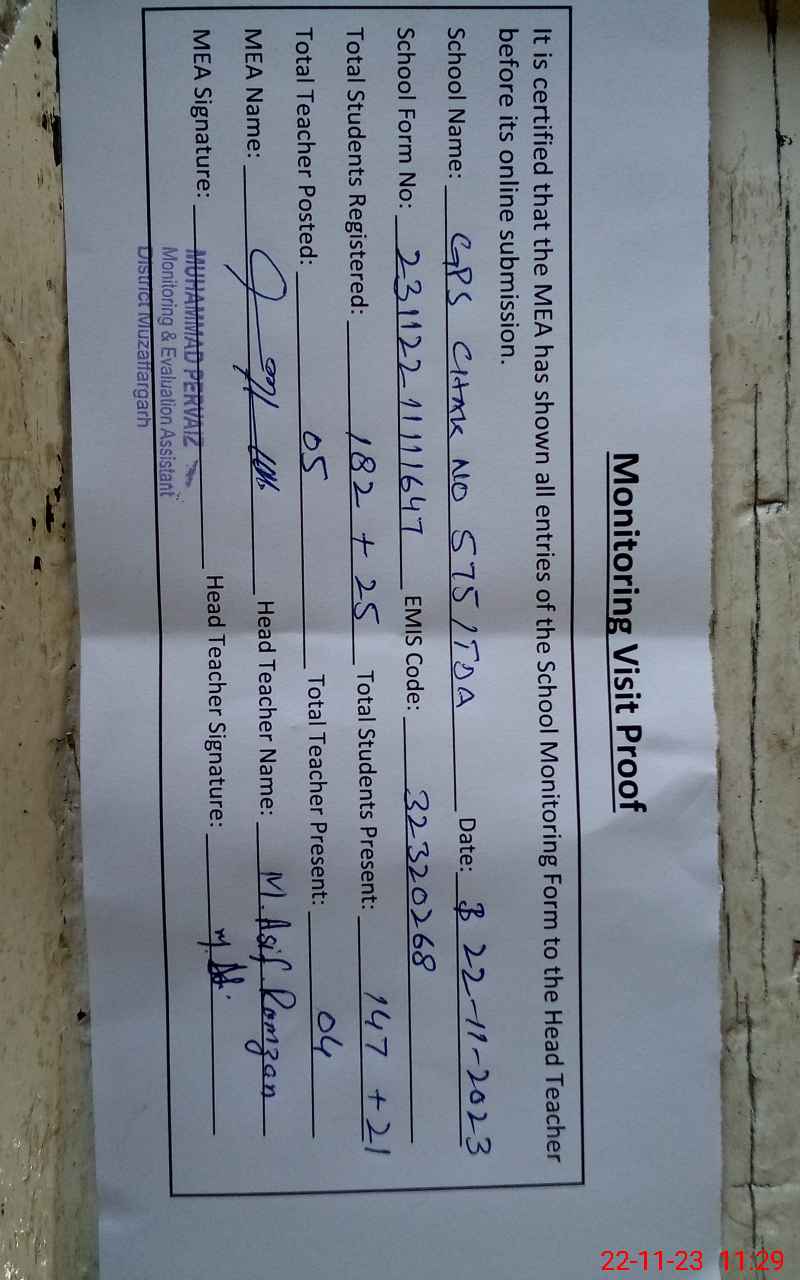 Monitoring Visit Proof
It is certified that the MEA has shown all entries of the School Monitoring Form to the Head Teacher
before its online submission.
School Name: GPS CHAK NO 575/TDA Date: 22-11-2023
School Form No: 23112211111647 EMIS Code: 32320268
Total Students Registered: 182 + 25 Total Students Present: 147 + 21
Total Teacher Posted: 05 Total Teacher Present: 04
MEA Name: Head Teacher Name: M. Asif Ramzan
MEA Signature: Head Teacher Signature:
MUHAMMAD PERVAIZ
Monitoring & Evaluation Assistant
District Muzaffargarh
22-11-23 11:29